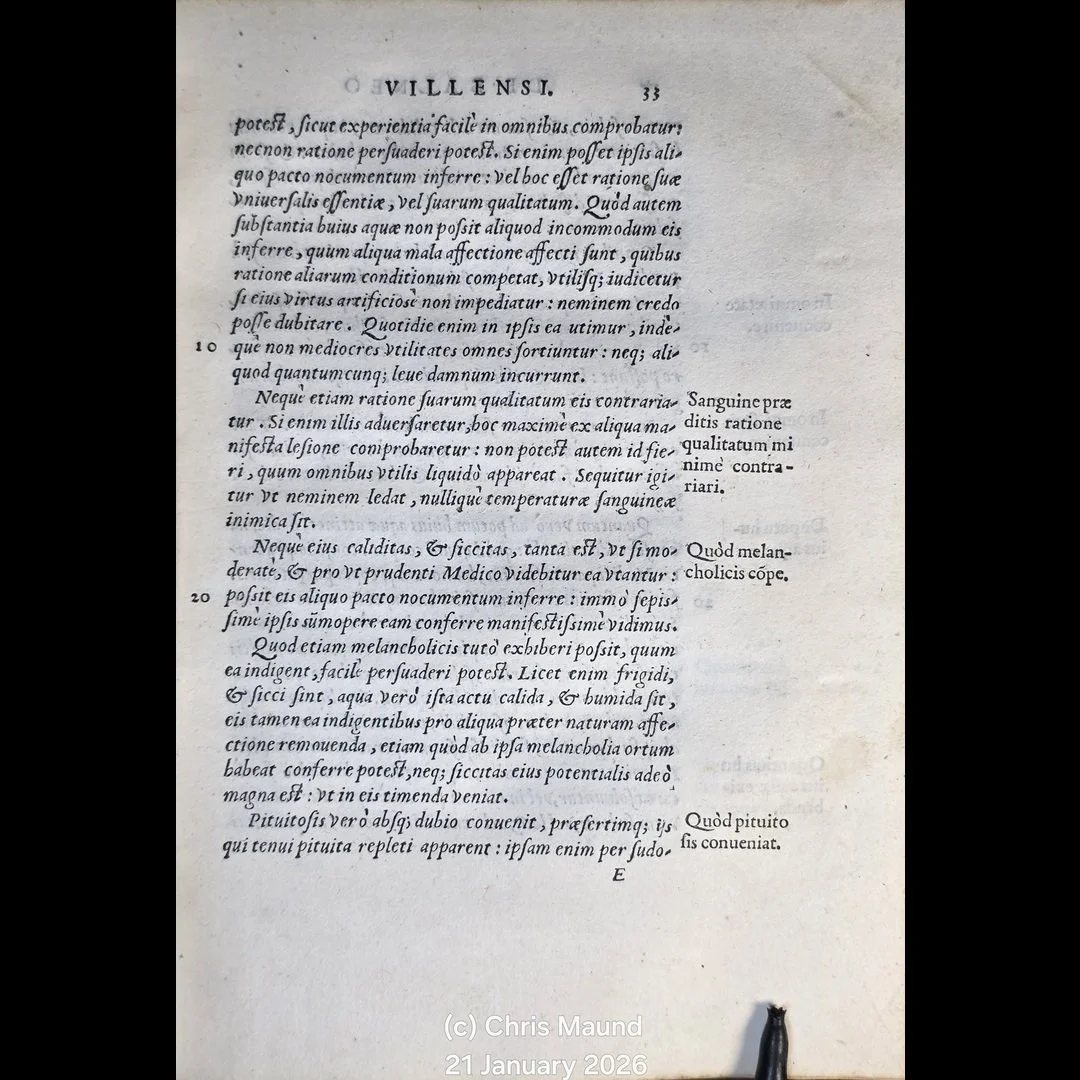 VILLENSI. 33
potest, sicut experientia facilè in omnibus comprobatur:
necnon ratione persuaderi potest. Si enim posset ipsis ali-
quo pacto nocumentum inferre: vel hoc esset ratione suæ
vniuersalis essentiæ, vel suarum qualitatum. Quòd autem
substantia huius aquæ non possit aliquod incommodum eis
inferre, quum aliqua mala affectione affecti sunt, quibus
ratione aliarum conditionum competat, vtilisq; iudicetur
si eius virtus artificiosè non impediatur: neminem credo
posse dubitare. Quotidie enim in ipsis ea utimur, indè-
10 què non mediocres vtilitates omnes sortiuntur: neq; ali-
quod quantumcunq; leue damnum incurrunt.
Nequè etiam ratione suarum qualitatum eis contraria-
tur. Si enim illis aduersaretur, hoc maximè ex aliqua ma-
nifesta lesione comprobaretur: non potest autem id fie-
ri, quum omnibus vtilis liquidò appareat. Sequitur igi-
tur vt neminem ledat, nulliquè temperaturæ sanguineæ
inimica sit.
Sanguine præ
ditis ratione
qualitatum mi
nimè contra-
riari.
Nequè eius caliditas, & siccitas, tanta est, vt si mo-
deratè, & pro vt prudenti Medico videbitur ea vtantur:
20 possit eis aliquo pacto nocumentum inferre: immò sepis-
simè ipsis sūmopere eam conferre manifestissimè vidimus.
Quòd melan-
cholicis cōpe.
Quod etiam melancholicis tutò exhiberi possit, quum
ea indigent, facilè persuaderi potest. Licet enim frigidi,
& sicci sint, aqua verò ista actu calida, & humida sit,
eis tamen ea indigentibus pro aliqua præter naturam affe-
ctione remouenda, etiam quòd ab ipsa melancholia ortum
habeat conferre potest, neq; siccitas eius potentialis adeò
magna est: vt in eis timenda veniat.
Pituitosis verò absq; dubio conuenit, præsertimq; ijs
qui tenui pituita repleti apparent: ipsam enim per sudo-
Quòd pituito
sis conueniat.
E
(c) Chris Maund
21 January 2026